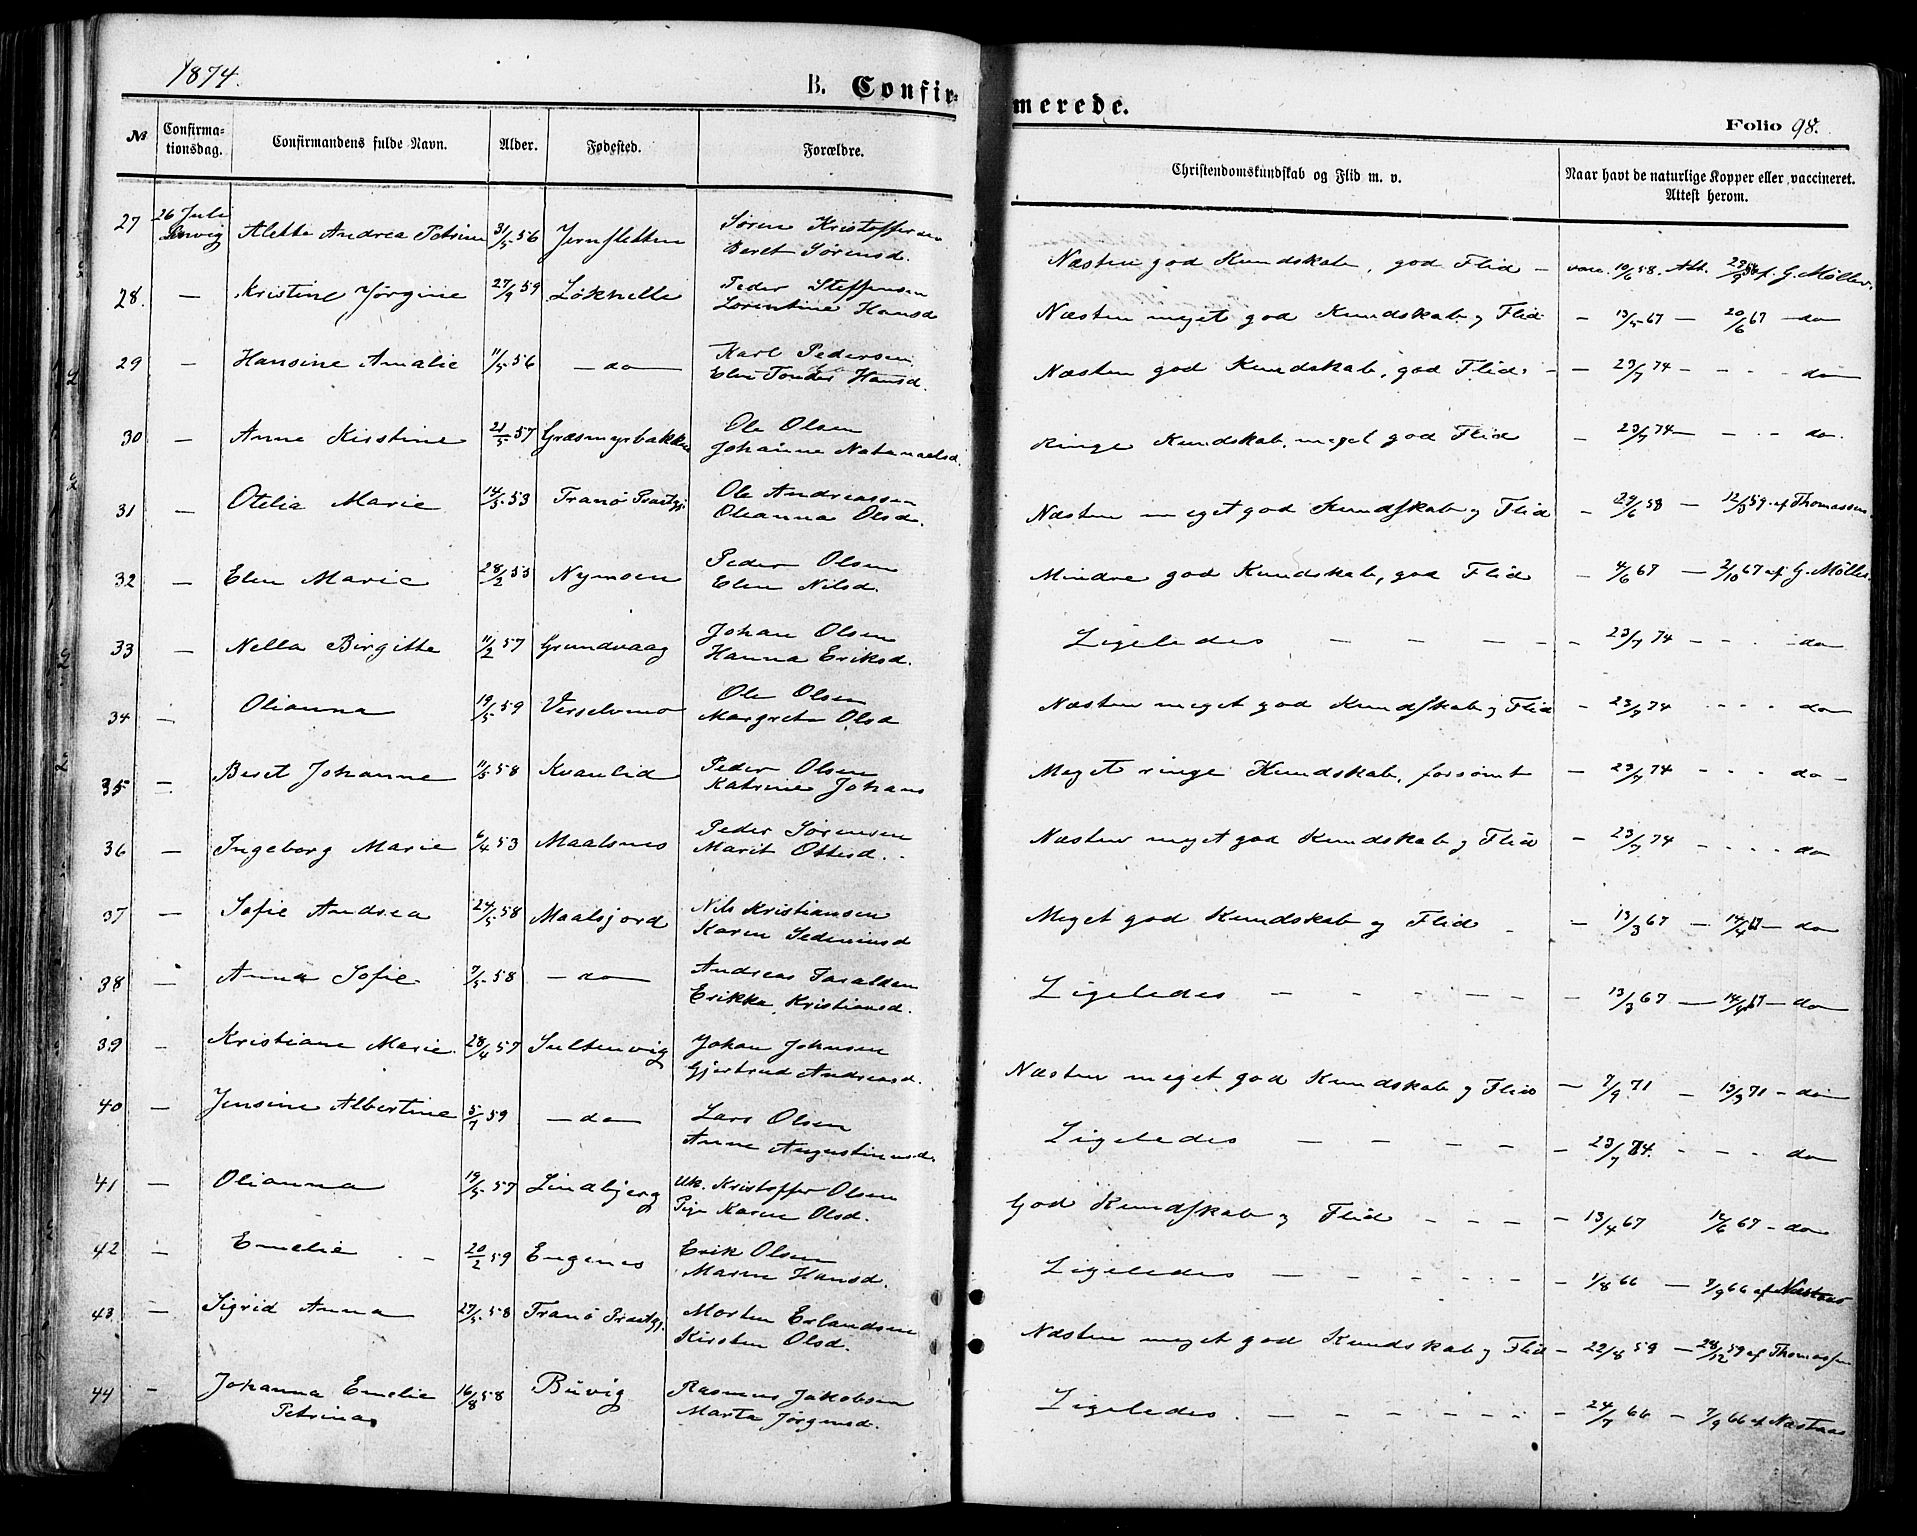 1874.
B. Confir-
merede.
Folio 98.
№
Confirma-
tionsdag.
Confirmandens fulde Navn.
Alder.
Fødested.
Forældre.
Christendomskundskab og Flid m. v.
Naar havt de naturlige Kopper eller vaccineret.
Attest herom.
27 26 Juli Aletta Andrea Petrine 31/5 56 Jernfletten Søren Kristoffersen
Beret Sørensd.
Næsten god Kundskab, god Flid - vacc. 10/6 58. Att. G. Møller.
28. — Kristine Jørgine 27/9 59 Løkhelle Peder Steffensen
Lorentine Hansd
Næsten meget god Kundskab og Flid - 13/5 67 — 20/6 67 — do
29 — Hansine Amalie 11/5 56 — do — Karl Pedersen
Elen Tonder Hansd.
Næsten god Kundskab, god Flid - - 23/7 74 - - - - do
30 — Anne Kirstine 21/5 57 Græsmyrbakken Ole Olsen
Johanne Natanaelsd.
Ringe Kundskab, meget god Flid - 23/7 74 - - - - do.
31 — Otelia Marie 14/5 53 Tranö Præstgj. Ole Andreassen
Oleanna Olsd.
Næsten meget god Kundskab og Flid - 24/6 58 — 59. af Thomassen.
32 — Elen Marie 28/2 55 Nymoen Peder Olsen
Elen Nilsd.
Mindre god Kundskab, god Flid - 4/6 67 — 2/10 67 af G. Møller.
33 — Nella Birgitte 11/2 57 Grundvaag Johan Olsen
Hanna Eriksd.
Ligeledes — — — - 23/7 74 - - - - do
34 — Olianna 19/5 59 Ole Olsen
Margrete Olsd
Næsten meget god Kundskab og Flid - 23/7 74 - - - - do
35 — Beret Johanne 11/5 58 Kvanlid Peder Olsen
Katrine Johans
Meget ringe Kundskab, forsømt - 23/7 74 - - - do -
36 — Ingeborg Marie 6/4 53 Maalsnes Peder Sørensen
Marit Ottesd.
Næsten meget god Kundskab og Flid - 23/7 74 - - - - do
37 — Sofie Andrea 24/5 58 Maalsjord Nils Kristiansen
Karen
Meget god Kundskab og Flid - - 13/3 67 — 14/4 67 — do
38 — Anna Sofie 7/5 58 — do — Andreas Taraldsen
Erikke Kristiansd.
Ligeledes — - - — - - 13/3 67 — 14/4 67 — do
39 — Kristiane Marie 28/4 57 Sultenvig Johan Johnsen
Gjertrud Andreasd.
Næsten meget god Kundskab og Flid — 7/9 71 — 13/9 71 - do
40 — Jensine Albertine 5/7 59 — do — Lars Olsen
Anne Augustinusd.
Ligeledes — — - — - - 23/7 74. - - - do
41 — Olianna 19/5 57 Lindbjerg Uk. Kristoffer Olsen
Pige Karen Olsd.
God Kundskab og Flid - - - - 13/4 67 12/6 67 - do
42 — Emelie 20/2 59 Engenes Erik Olsen
Maren Hansd.
Ligeledes — — - - — - 1/8 66 — 7/9 66 af Næstaas
43 — Sigrid Anna 27/5 58 Tranö Præstgj. Morten Erlandsen
Kirsten Olsd.
Næsten meget god Kundskab og Flid - 22/8 59 — 28/12 59 af Thomassen
44 — Johanna Emelie 16/8 58 Buvig Rasmus Jakobsen
Petrina Marta Jørgensd.
Ligeledes. — — - - - - 24/7 66 — 7/9 66 af Næstaas